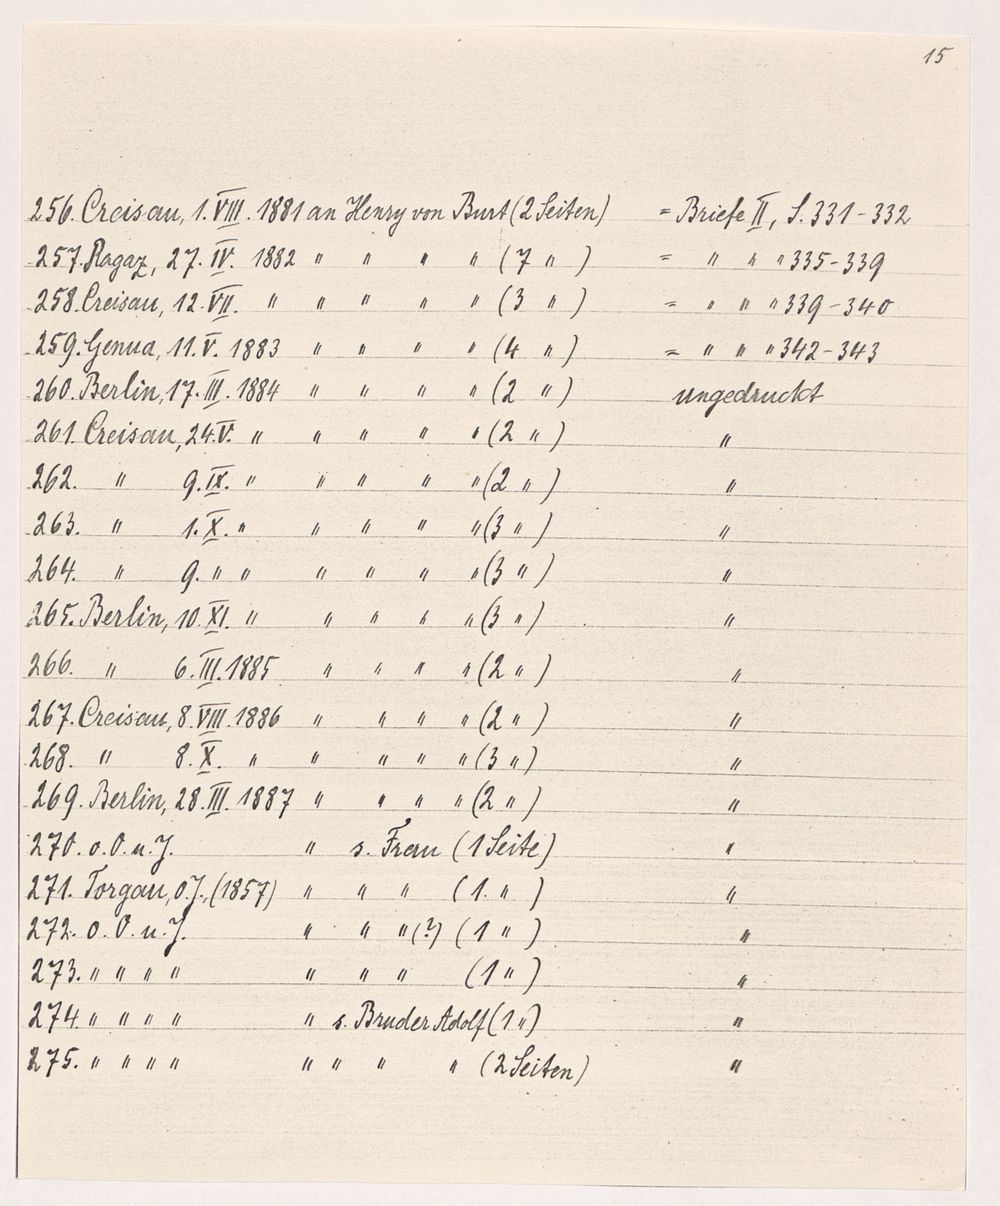 15
256. Creisau, 1. VIII. 1881 an Henry von Burt (2 Seiten) = Briefe II, S. 331-332
257. Ragaz, 27. IV. 1882 " " " " (7 " ) = " " " 335-339
258. Creisau, 12. VII. " " " " " (3 " ) = " " " 339-340
259. Genua, 11. V. 1883 " " " " (4 " ) = " " " 342-343
260. Berlin, 17. III. 1884 " " " " (2 " ) ungedruckt
261. Creisau, 24. V. " " " " " (2 " ) "
262. " 9. IX. " " " " " (2 " ) "
263. " 1. X. " " " " " (3 " ) "
264. " 9. " " " " " " (3 " ) "
265. Berlin, 10. XI. " " " " " (3 " ) "
266. " 6. III. 1885 " " " " (2 " ) "
267. Creisau, 8. VIII. 1886 " " " " (2 " ) "
268. " 8. X. " " " " " (3 " ) "
269. Berlin, 28. III. 1887 " " " " (2 " ) "
270. o. O. u. J. " s. Frau (1 Seite) "
271. Torgau, o. J., (1857) " " " (1. " ) "
272. o. O. u. J. " " " (?) (1 " ) "
273. " " " " " " " (1 " ) "
274. " " " " " s. Bruder Adolf (1 " ) "
275. " " " " " " " " (2 Seiten) "